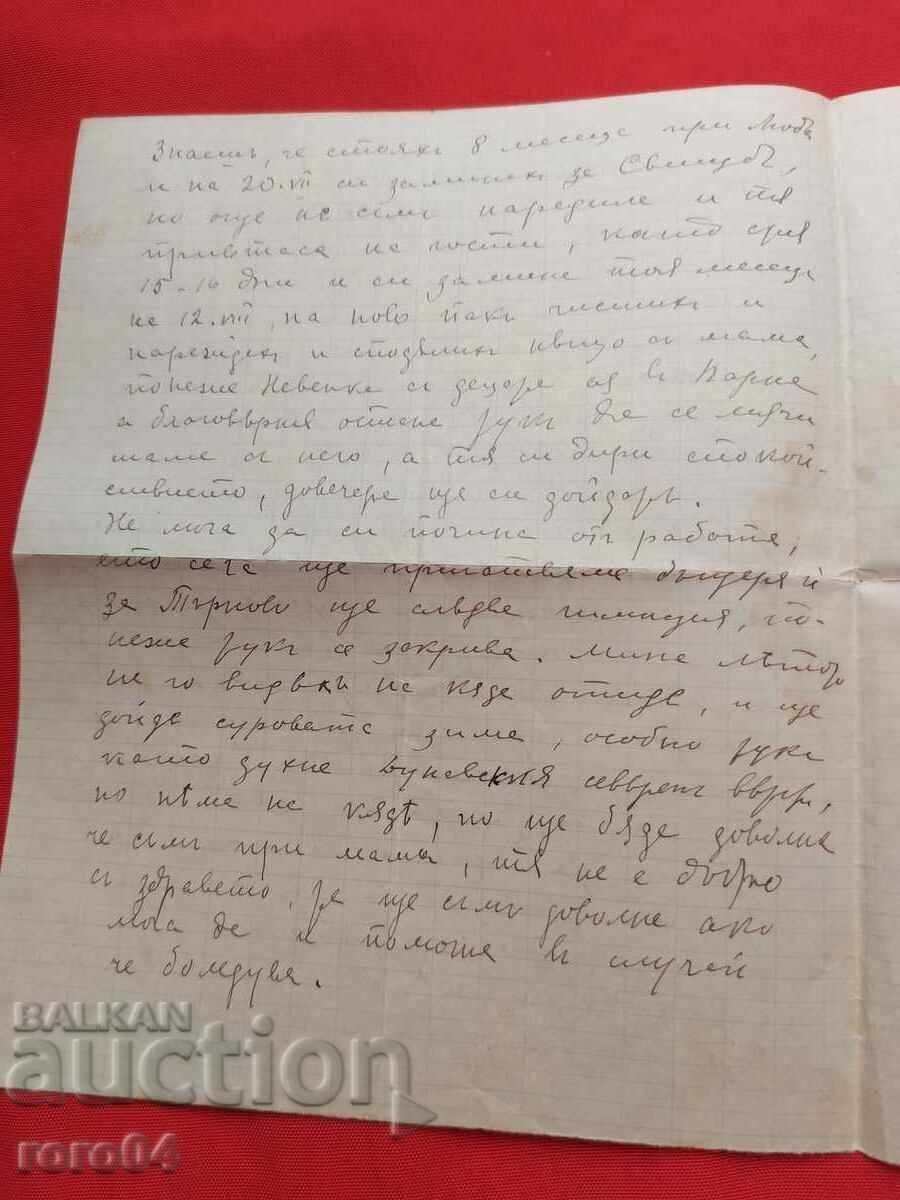 Знаешъ, че стояхъ 8 месеца при Люба
и на 20.VII си заминахъ за Свищовъ,
но още не съмъ наредила и тя
пристигна на гости, като стоя
15-16 дни и си замина тоя месецъ
на 12.VIII, на ново пакъ чистихъ и
нареждахъ и сподѣлихъ нѣщо съ мама,
понеже Невенка съ децата си въ Варна
а остана тукъ да се мѫчи
мама съ него, а тя си дири спокой-
ствието, довечера ще си дойдатъ.
Не мога да си почина отъ работа,
ето сега ще приготвяме дъщеря й
за Търново ще следва гимназия, по-
неже тукъ се закрива. Мина лѣтото
не го видѣхъ на кѫде отиде, и ще
дойде суровата зима, особно тукъ
като духне Дунавския северенъ вѣтъръ,
но нѣма на кѫдѣ, но ще бѫда доволна
че съмъ при мама, тя не е добре
съ здравето, та ще съмъ доволна ако
мога да и помогна въ случай
че боледува.
BALKAN
auction
roro04